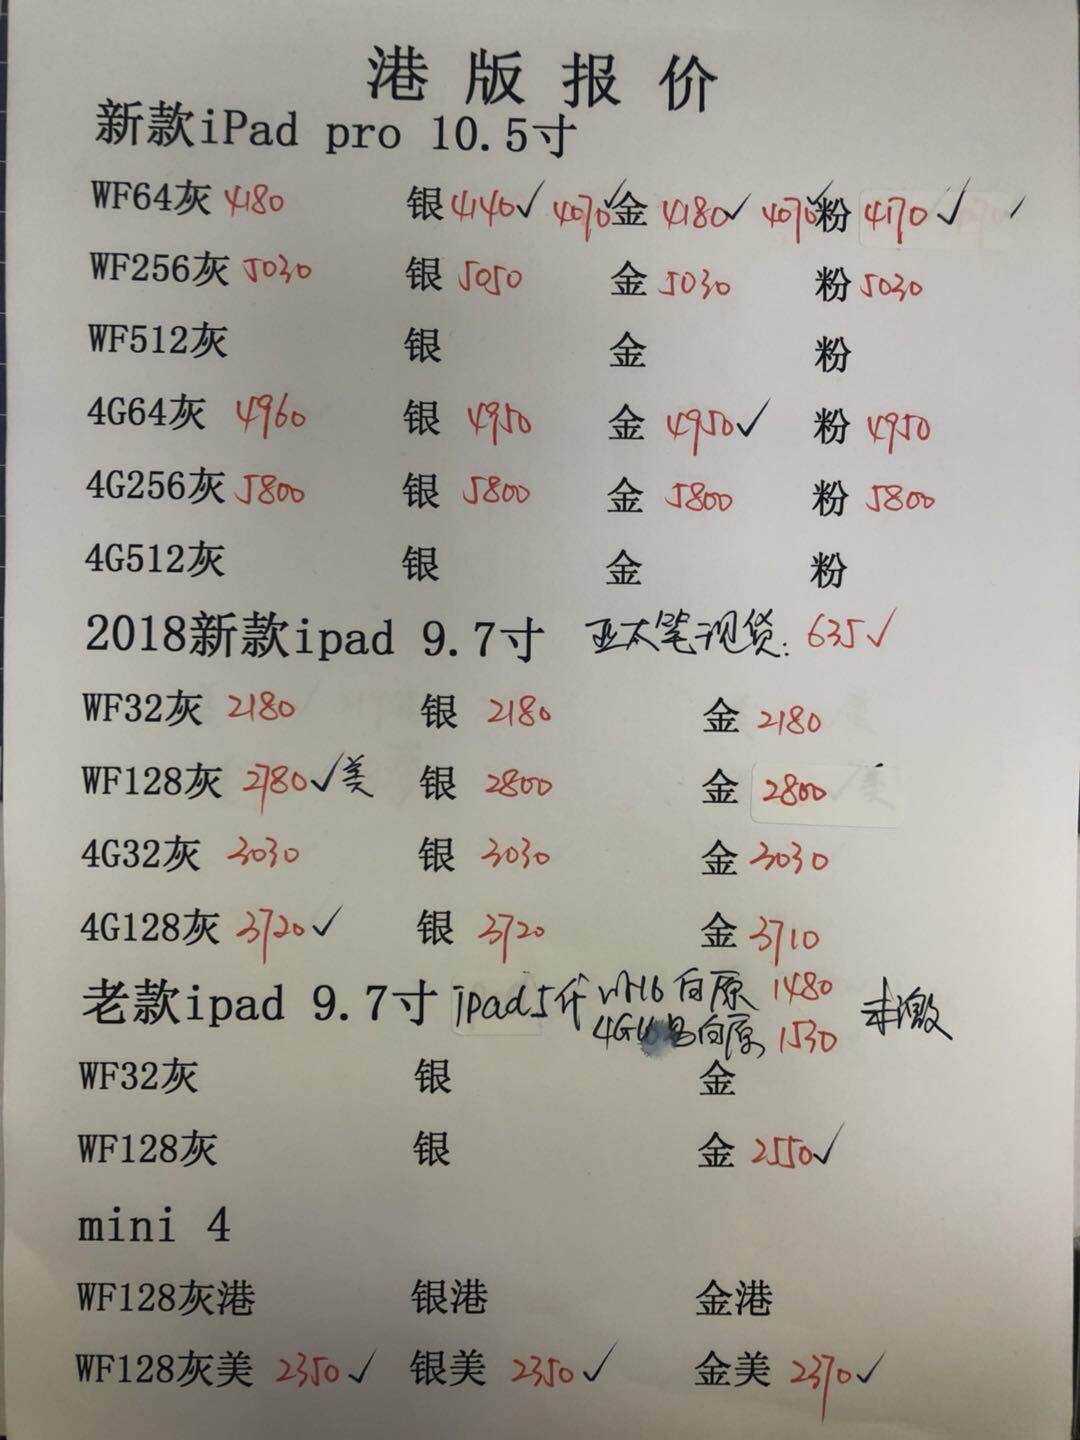 港版报价
新款iPad pro 10.5寸
WF64灰 4180 银 4140✓ 4070✓ 金 4180✓ 4070✓ 粉 4170✓ ✓
WF256灰 5030 银 5050 金 5030 粉 5030
WF512灰 银 金 粉
4G64灰 4960 银 4950 金 4950✓ 粉 4950
4G256灰 5800 银 5800 金 5800 粉 5800
4G512灰 银 金 粉
2018新款ipad 9.7寸 亚太笔现货: 635✓
WF32灰 2180 银 2180 金 2180
WF128灰 2780✓美 银 2800 金 2800
4G32灰 3030 银 3030 金 3030
4G128灰 3720✓ 银 3720 金 3710
老款ipad 9.7寸 ipad5代 16白原 1480 未激
4G 白原 1530
WF32灰 银 金
WF128灰 银 金 2550✓
mini 4
WF128灰港 银港 金港
WF128灰美 2350✓ 银美 2350✓ 金美 2370✓